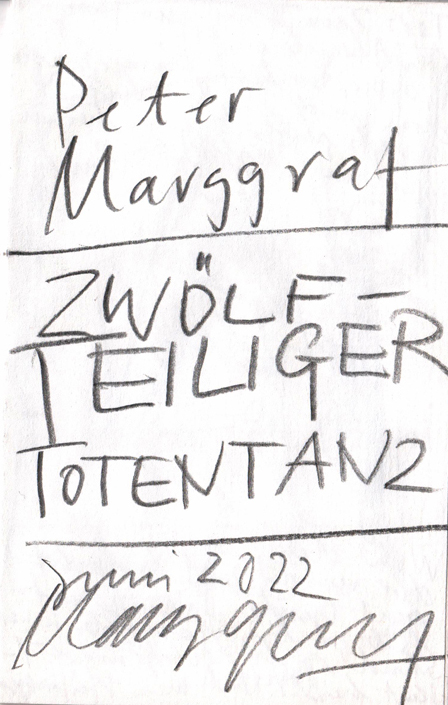 Peter
Marggraf
ZWÖLF-
TEILIGER
TOTENTANZ
Juni 2022
Marggraf